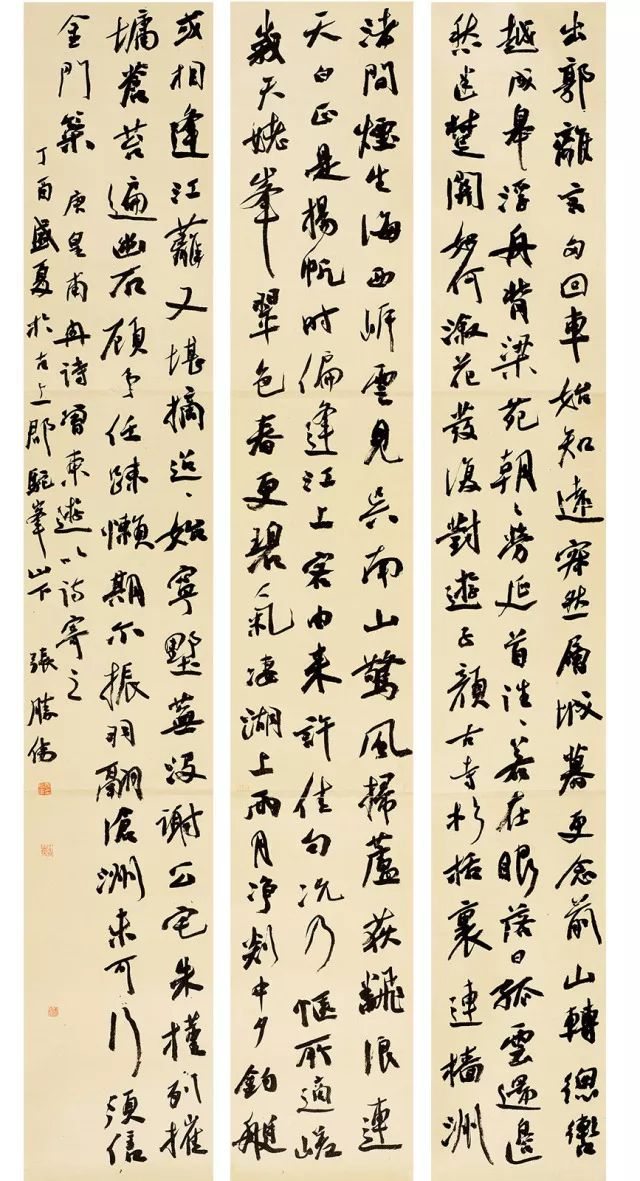 出郭離言多回車始知遠寂然層城暮更念前山轉總轡
越成皋浮舟背梁苑朝〻勞延首往〻若在眼落日孤雲還邊
愁迷楚關如何淑花發復對遊子顏古寺杉栝裏連檣洲
渚間煙生海西岸雲見吳南山驚風掃蘆荻翻浪連
天白正是揚帆時偏逢江上客由來許佳句況乃愜所適嵯
峩天姥峯翠色春更碧氣淒湖上雨月淨剡中夕釣艇
或相逢江蘺又堪摘迢〻始寧墅蕪沒謝公宅朱槿列摧
墉蒼苔遍幽石顧予任疎懶期尒振羽翮滄洲未可行須信
金門策 唐皇甫冉詩曾東遊以詩寄之
丁酉盛夏於古上郡駝峯山下 張勝偉